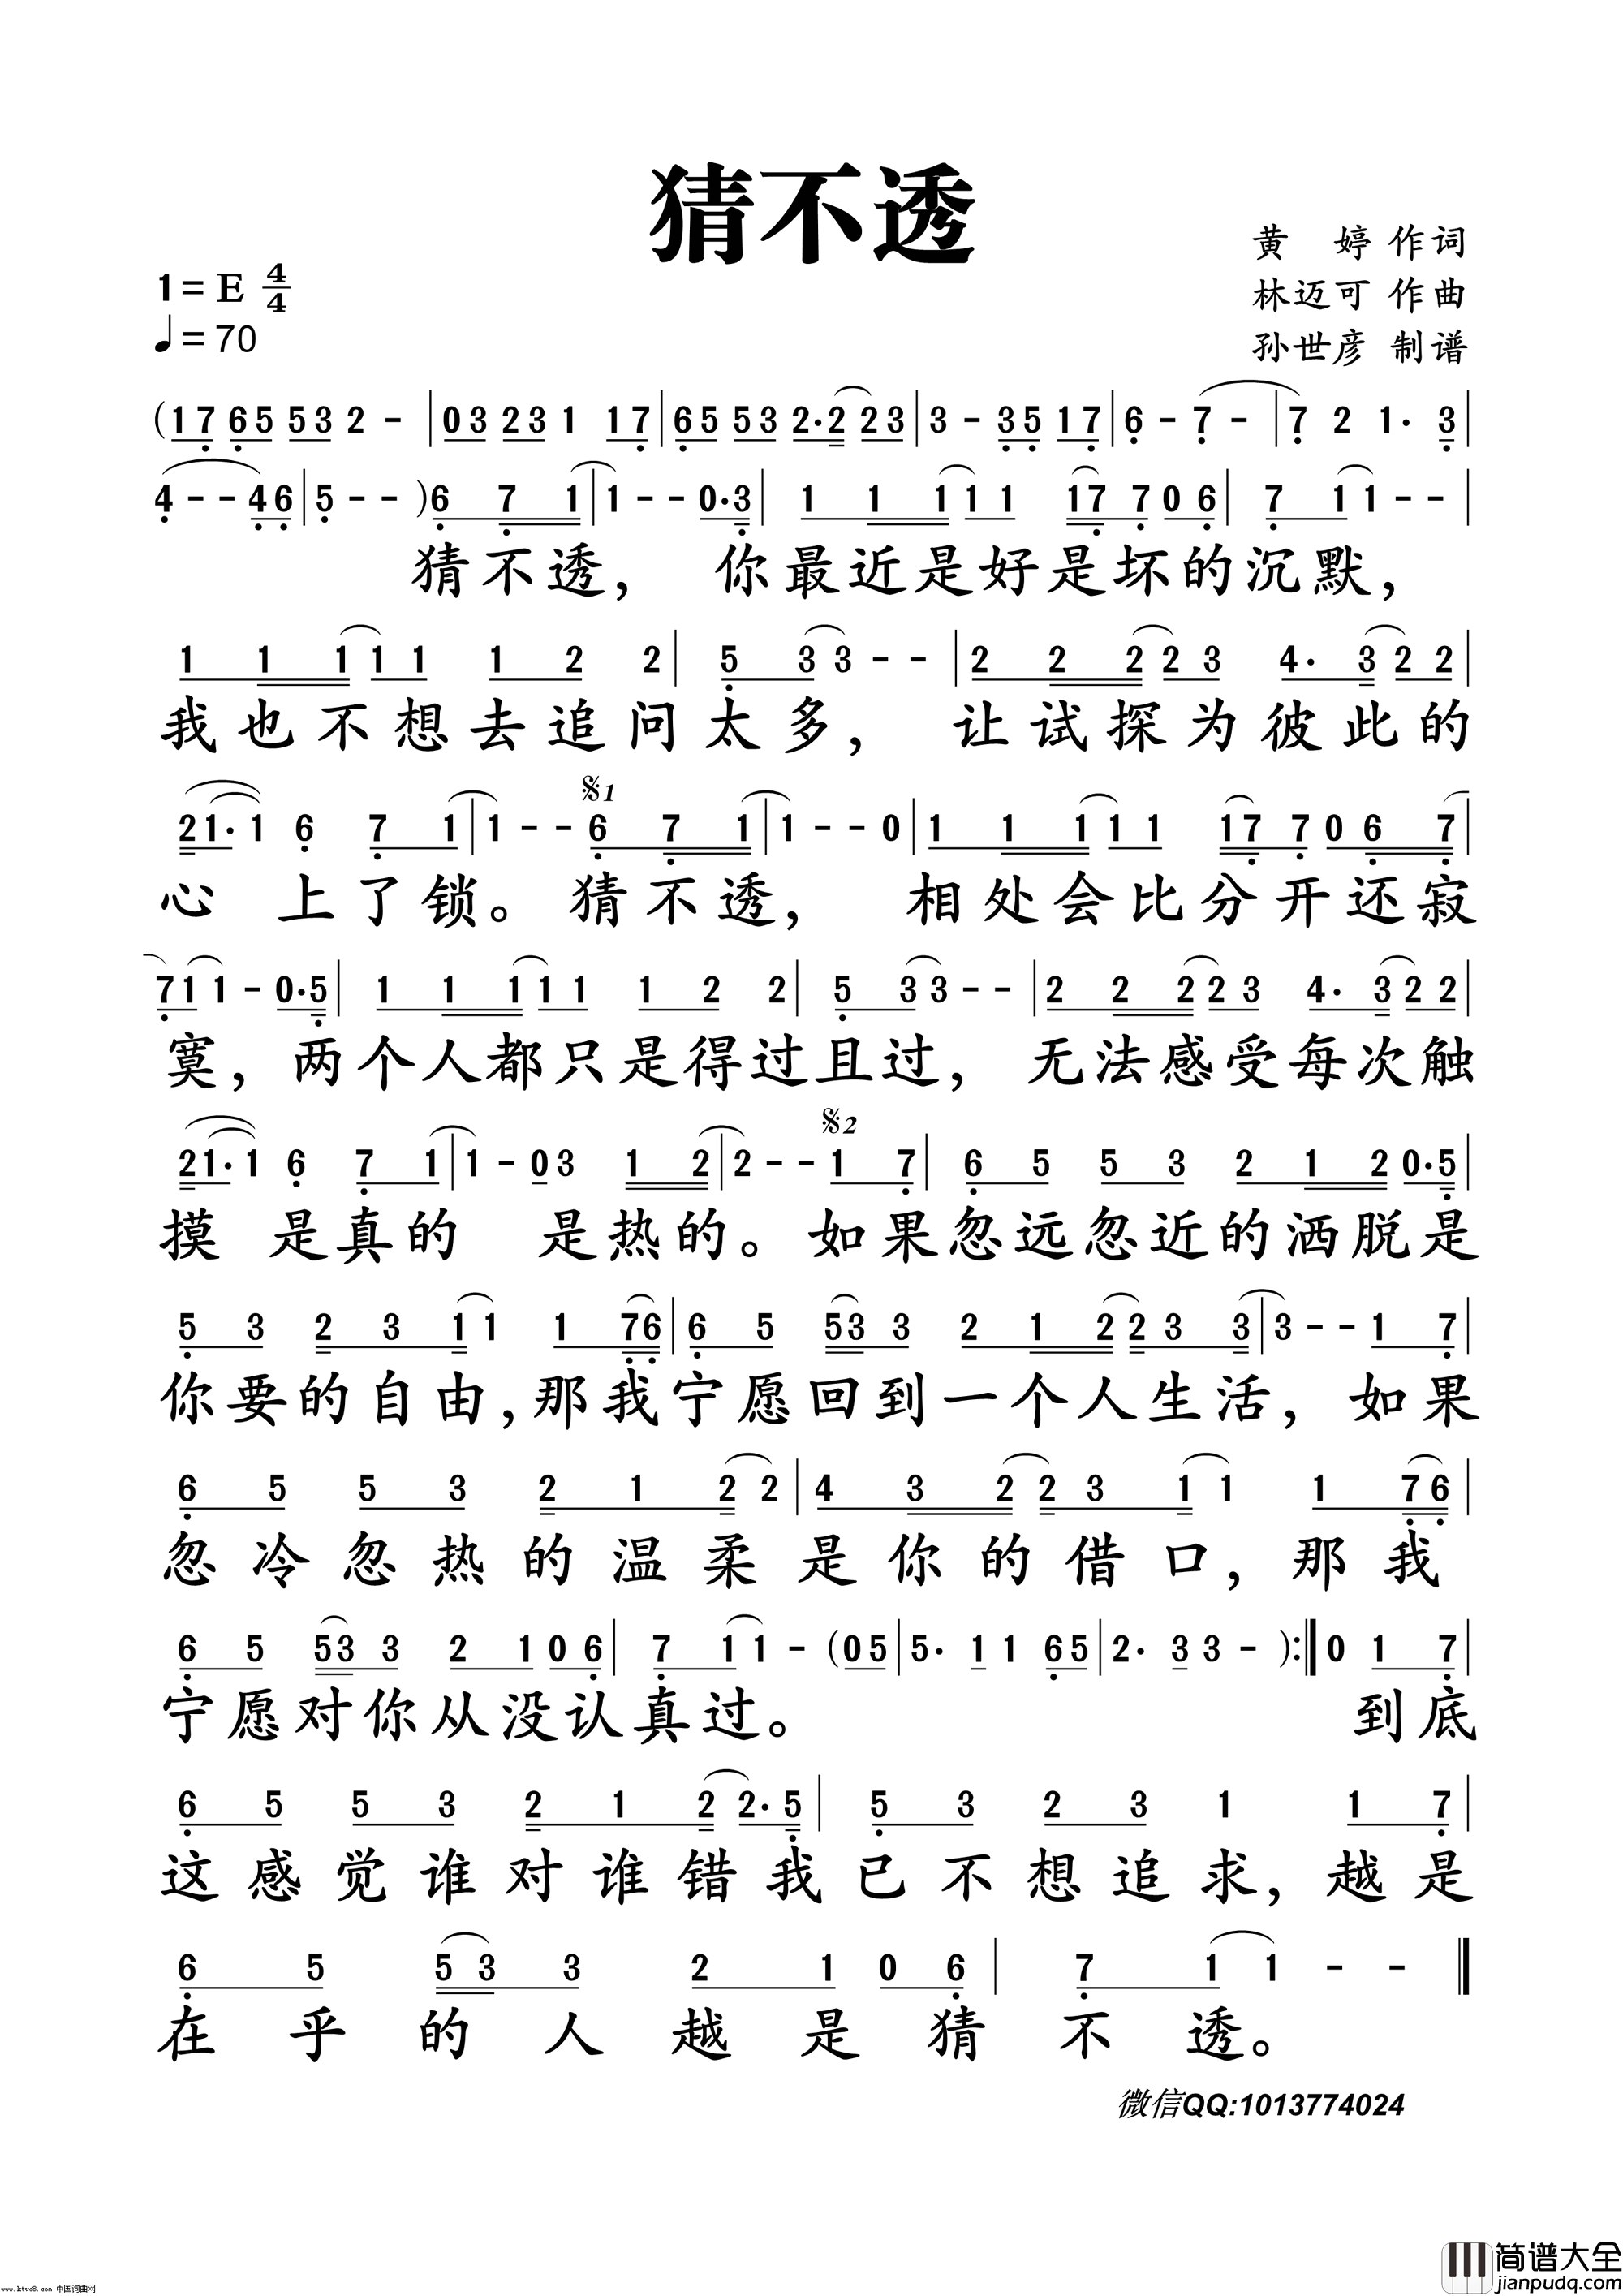 猜不透
黄 婷 作词
1= E 4/4
林迈可 作曲
♩= 70
孙世彦 制谱
(17 65 53 2 - | 03 23 1 17 | 65 53 2·2 23 | 3 - 35 17 | 6 - 7 - | 7 2 1· 3 |
4 - - 46 | 5 - - )6 7 1 | 1 - - 0·3 | 1 1 1 1 1 17 7 0 6 | 7 1 1 - - |
猜不透, 你最近是好是坏的沉默,
1 1 1 1 1 1 2 2 | 5 3 3 - - | 2 2 2 2 3 4· 3 2 2 |
我也不想去追问太多, 让试探为彼此的
21·1 6 7 1 | 1 - - 𝄋1 6 7 1 | 1 - - 0 | 1 1 1 1 1 17 7 0 6 7 |
心 上了锁。猜不透, 相处会比分开还寂
7 1 1 - 0·5 | 1 1 1 1 1 1 2 2 | 5 3 3 - - | 2 2 2 2 3 4· 3 2 2 |
寞, 两个人都只是得过且过, 无法感受每次触
21·1 6 7 1 | 1 - 0 3 1 2 | 2 - - 𝄋2 1 7 | 6 5 5 3 2 1 2 0·5 |
摸 是真的 是热的。如果忽远忽近的洒脱是
5 3 2 3 1 1 1 76 | 6 5 53 3 2 1 2 2 3 3 | 3 - - 1 7 |
你要的自由,那我宁愿回到一个人生活, 如果
6 5 5 3 2 1 2 2 | 4 3 2 2 3 1 1 1 76 |
忽冷忽热的温柔是你的借口, 那我
6 5 53 3 2 1 0 6 | 7 1 1 - (05 | 5· 1 1 65 | 2· 3 3 - ):| 0 1 7 |
宁愿对你从没认真过。 到底
6 5 5 3 2 1 2 2·5 | 5 3 2 3 1 1 7 |
这感觉谁对谁错我已不想追求, 越是
6 5 5 3 3 2 1 0 6 | 7 1 1 - - ‖
在乎的人越是猜不透。
微信QQ:1013774024
简谱大全
jianpudq.com
www.ktvc8.com 中国词曲网